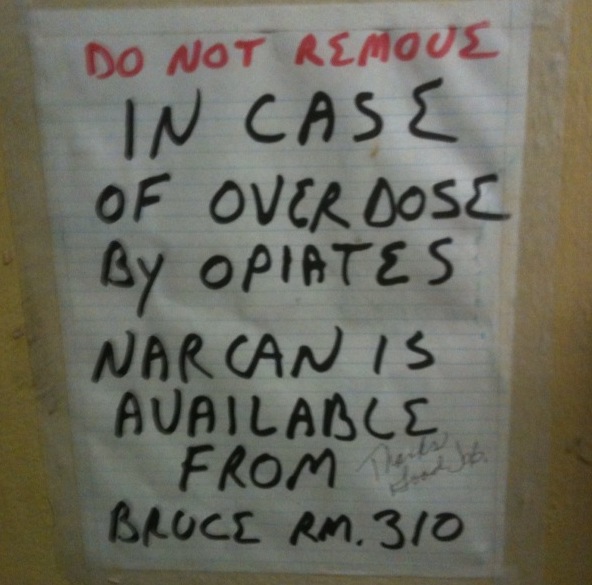 DO NOT REMOVE
IN CASE
OF OVERDOSE
BY OPIATES
NARCAN IS
AVAILABLE
FROM
Thanks
Good Job.
BRUCE RM. 310